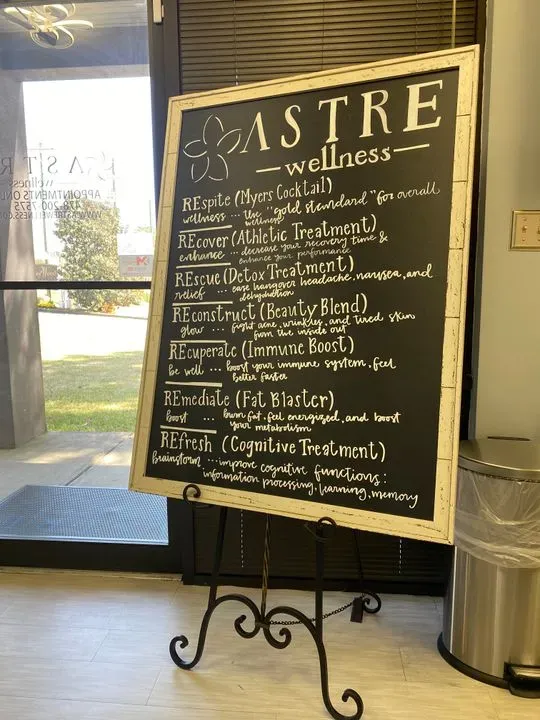 ASTRE
wellness
REspite (Myers Cocktail)
wellness ... the "gold standard" for overall
wellness
REcover (Athletic Treatment)
enhance ... decrease your recovery time &
enhance your performance
REscue (Detox Treatment)
relief ... ease hangover headache, nausea, and
dehydration
REconstruct (Beauty Blend)
glow ... fight acne, wrinkles, and tired skin
from the inside out
REcuperate (Immune Boost)
be well ... boost your immune system, feel
better faster
REmediate (Fat Blaster)
boost ... burn fat, feel energized, and boost
your metabolism
REfresh (Cognitive Treatment)
brainstorm ... improve cognitive functions:
information processing, learning, memory
ASTR
wellness
APPOINTMENTS ON